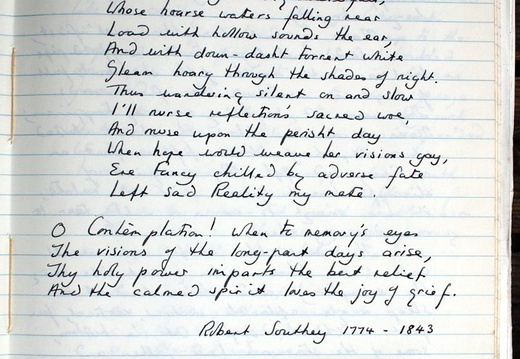 Whose hoarse waters falling near
Load with hollow sounds the ear,
And with down-dasht torrent white
Gleam hoary through the shades of night.
Thus wandering silent on and slow
I'll nurse reflection's sacred woe,
And muse upon the perisht day
When hope would weave her visions gay,
Ere Fancy chilled by adverse fate
Left sad Reality my mate.
O Contemplation! when to memory's eyes
The visions of the long-past days arise,
Thy holy power imparts the best relief
And the calmed spirit loves the joy of grief.
Robert Southey 1774 - 1843